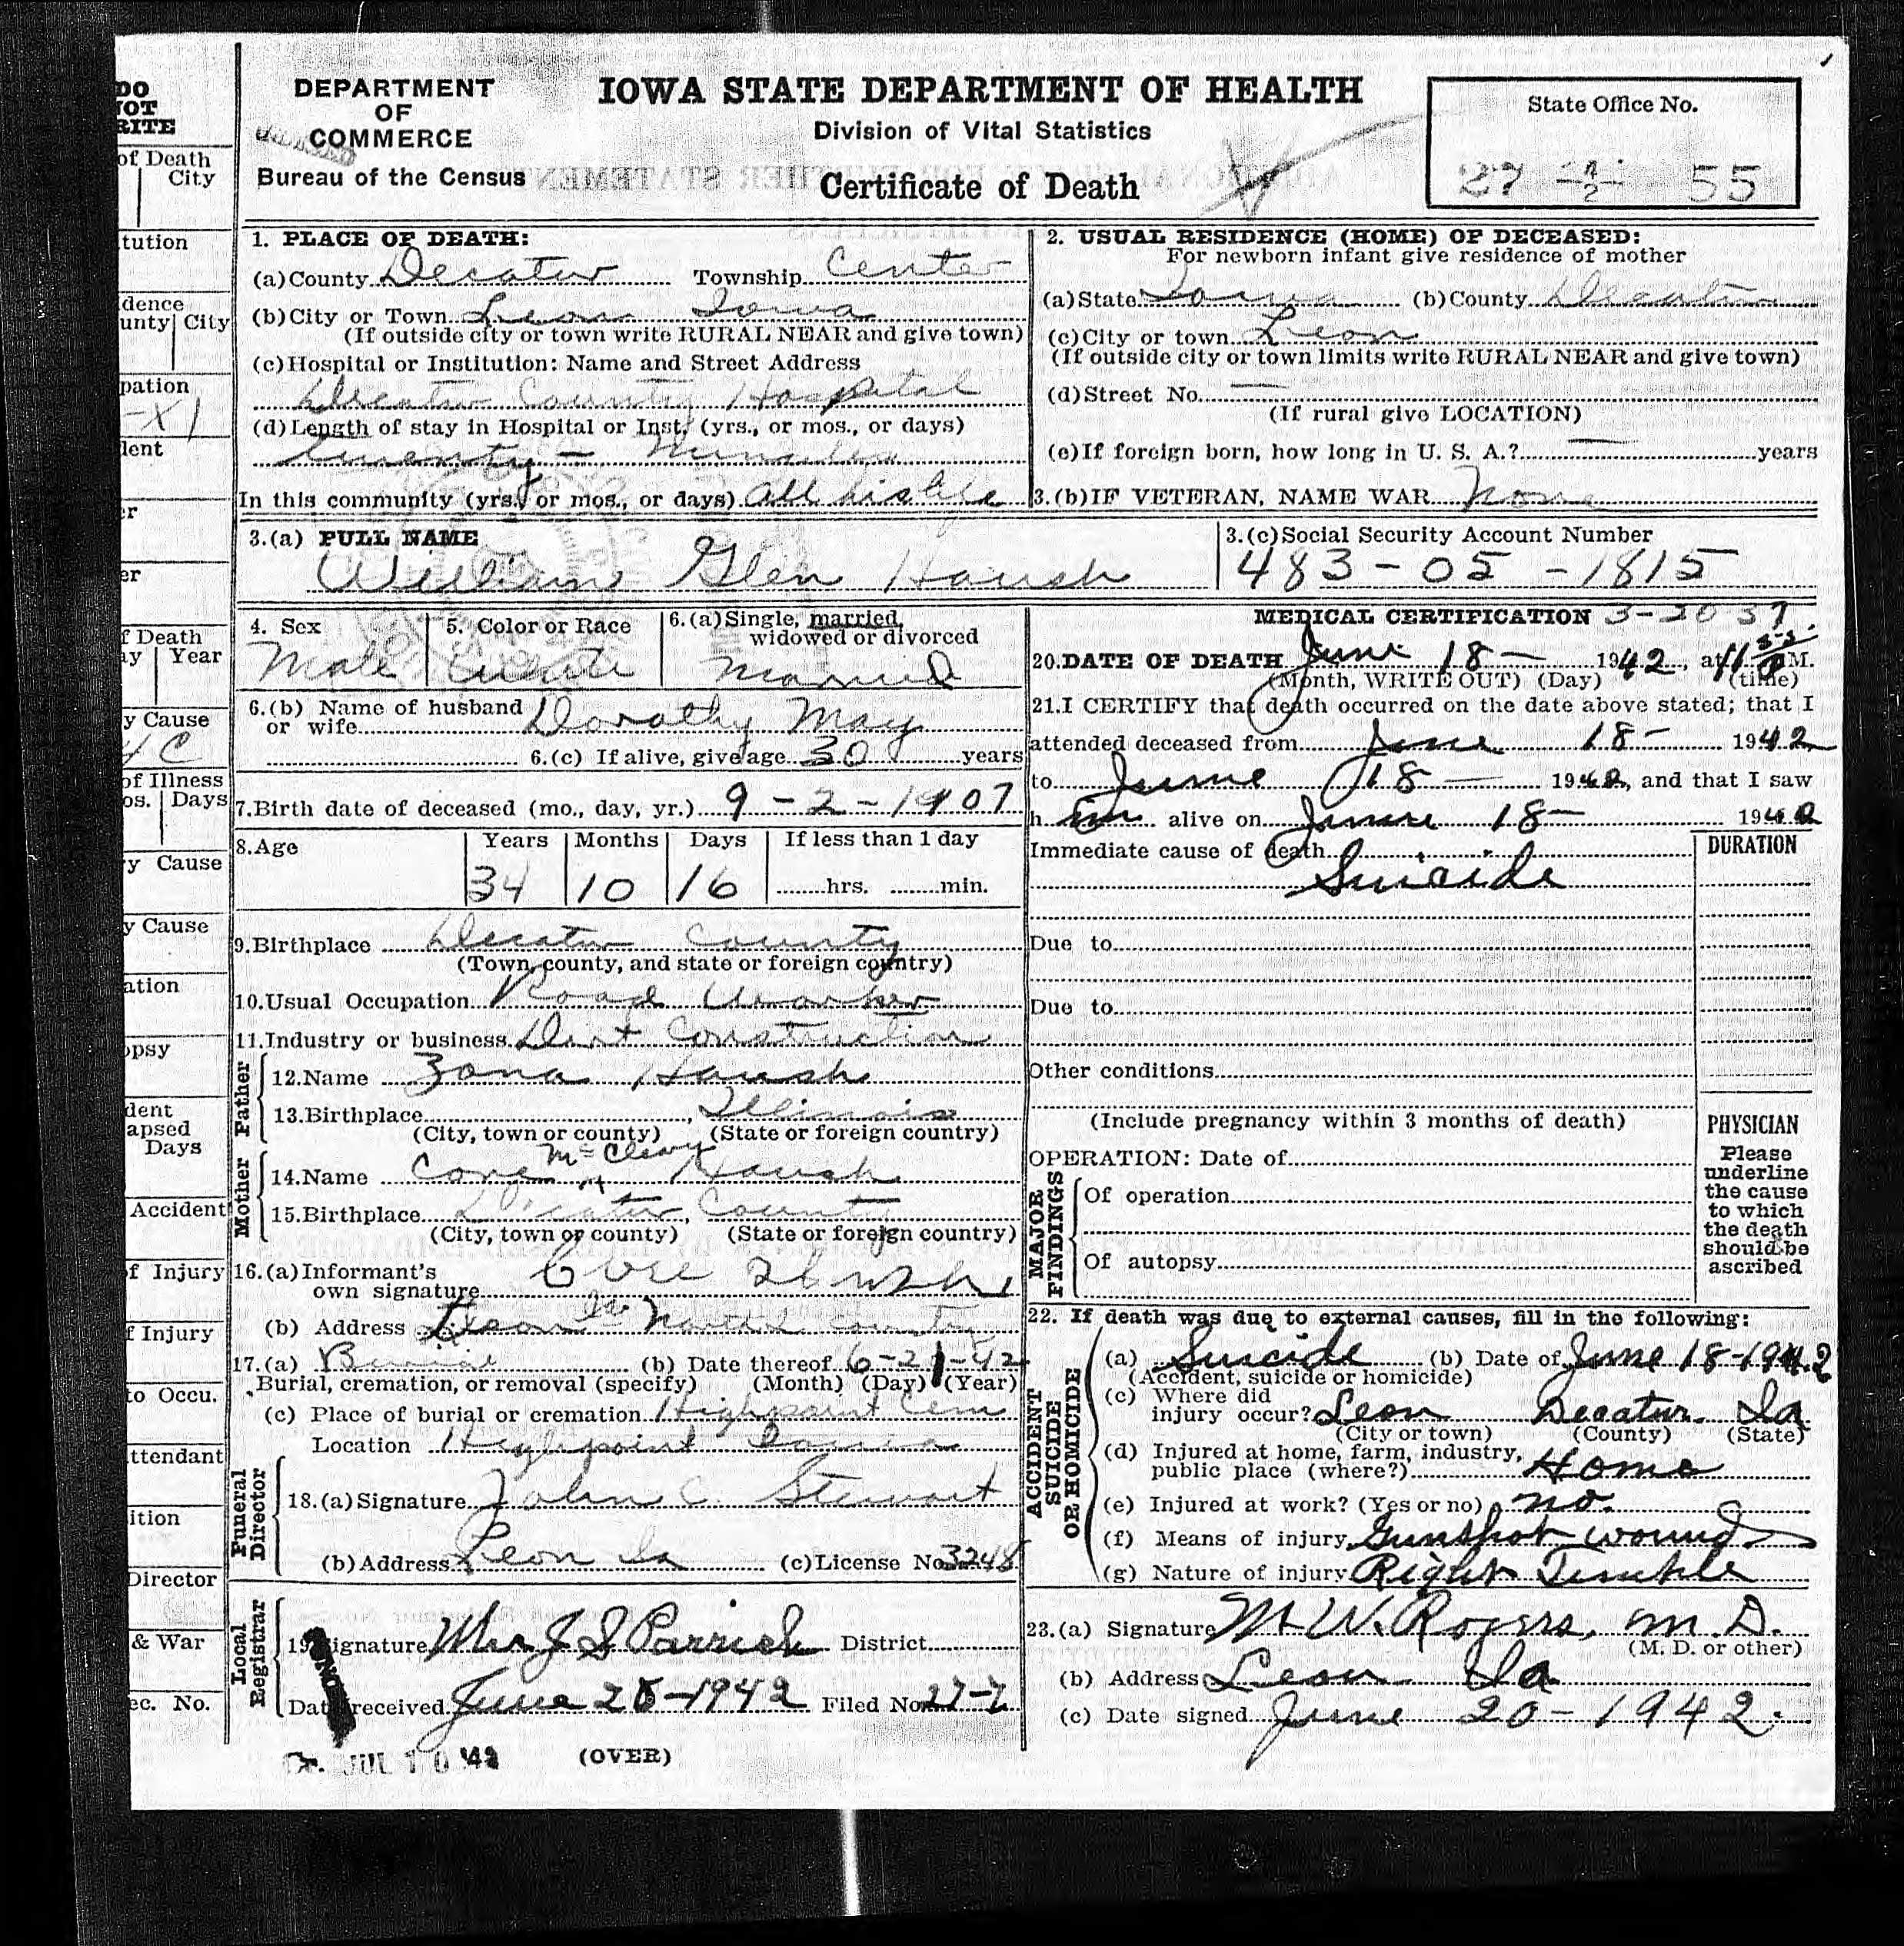 DO
NOT
RITE
of Death
City
tution
dence
unty City
pation
-X1
dent
er
er
f Death
ay Year
y Cause
4 C
of Illness
os. Days
ry Cause
y Cause
ation
opsy
dent
apsed
Days
Accident
of Injury
f Injury
to Occu.
ttendant
ition
Director
& War
ec. No.
DEPARTMENT
OF
COMMERCE
Bureau of the Census
IOWA STATE DEPARTMENT OF HEALTH
Division of Vital Statistics
Certificate of Death
State Office No.
27 55
1. PLACE OF DEATH:
(a) County Decatur Township Center
(b) City or Town Leon Iowa
(If outside city or town write RURAL NEAR and give town)
(c) Hospital or Institution: Name and Street Address
Decatur County Hospital
(d) Length of stay in Hospital or Inst. (yrs., or mos., or days)
Twenty - Minutes
In this community (yrs., or mos., or days) all his life
2. USUAL RESIDENCE (HOME) OF DECEASED:
For newborn infant give residence of mother
(a) State Iowa (b) County Decatur
(c) City or town Leon
(If outside city or town limits write RURAL NEAR and give town)
(d) Street No. —
(If rural give LOCATION)
(e) If foreign born, how long in U. S. A.? — years
3. (b) IF VETERAN, NAME WAR None
3. (a) FULL NAME
William Glen Haush
3. (c) Social Security Account Number
483-05-1815
4. Sex
Male
5. Color or Race
White
6. (a) Single, married,
widowed or divorced
Married
6. (b) Name of husband
or wife Dorothy May
6. (c) If alive, give age 30 years
7. Birth date of deceased (mo., day, yr.) 9-2-1907
8. Age
Years Months Days If less than 1 day
34 10 16 hrs. min.
9. Birthplace Decatur County
(Town, county, and state or foreign country)
10. Usual Occupation Road Worker
11. Industry or business Dirt Construction
Father
12. Name Zona Haush
13. Birthplace , Illinois
(City, town or county) (State or foreign country)
Mother
14. Name Haush
15. Birthplace Decatur, County
(City, town or county) (State or foreign country)
16. (a) Informant's
own signature
(b) Address Leon Ia
17. (a) Burial (b) Date thereof 6-21-42
Burial, cremation, or removal (specify) (Month) (Day) (Year)
(c) Place of burial or cremation Highpoint Cem
Location Highpoint Iowa
Funeral Director
18. (a) Signature John C. Stewart
(b) Address Leon Ia (c) License No. 3248
Local Registrar
19. Signature Mrs J S Parrish District
Date received June 20-1942 Filed No. 27-7
JUL 10 '42 (OVER)
MEDICAL CERTIFICATION 3-20 37
20. DATE OF DEATH June 18 - 1942, at 11 55 P M.
(Month, WRITE OUT) (Day) (time)
21. I CERTIFY that death occurred on the date above stated; that I
attended deceased from June 18- 1942
to June 18 — 1942, and that I saw
h im alive on June 18- 1942
Immediate cause of death
Suicide
DURATION
Due to
Due to
Other conditions
(Include pregnancy within 3 months of death)
OPERATION: Date of
MAJOR FINDINGS
Of operation
Of autopsy
PHYSICIAN
Please
underline
the cause
to which
the death
should be
ascribed
22. If death was due to external causes, fill in the following:
ACCIDENT
SUICIDE
OR HOMICIDE
(a) Suicide (b) Date of June 18-1942
(Accident, suicide or homicide)
(c) Where did
injury occur? Leon Decatur Ia
(City or town) (County) (State)
(d) Injured at home, farm, industry,
public place (where?) Home
(e) Injured at work? (Yes or no) no.
(f) Means of injury Gunshot wound
(g) Nature of injury Right Temple
23. (a) Signature M W. Rogers, M.D.
(M. D. or other)
(b) Address Leon Ia
(c) Date signed June 20-1942.